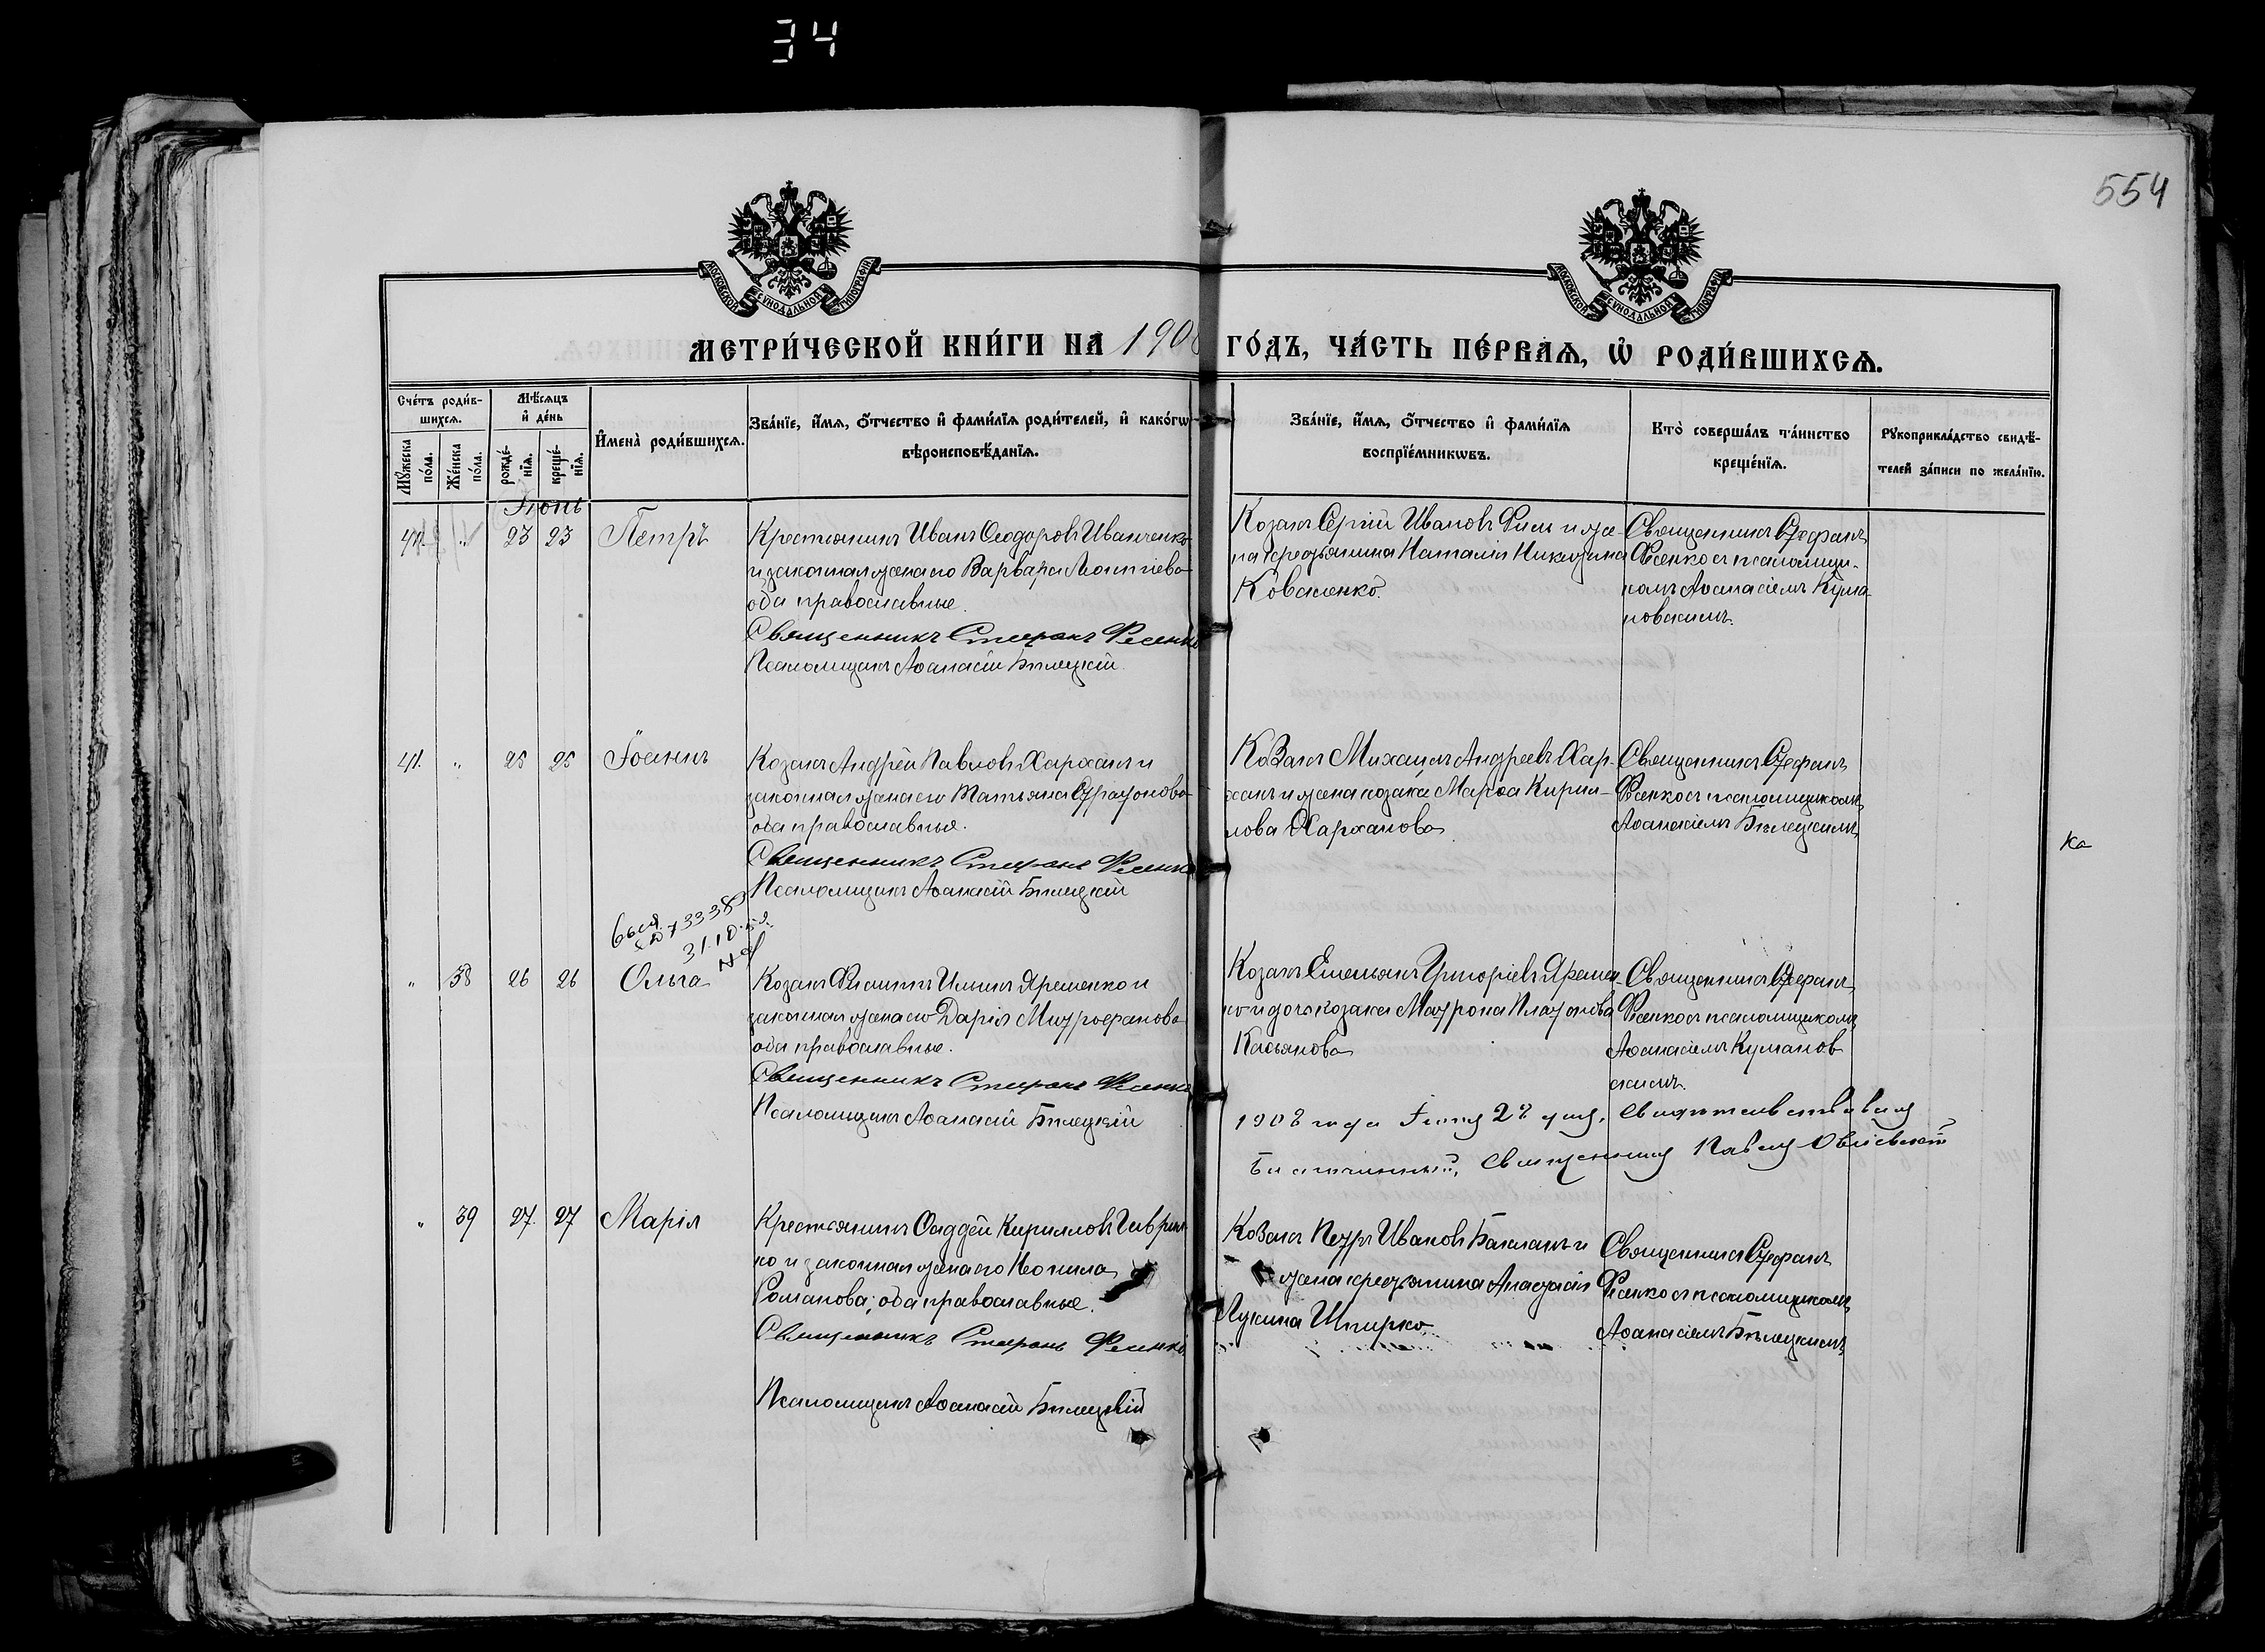 34
554
МОСКОВСКОЙ СѴНОДАЛЬНОЙ ТИПОГРАФІИ
МОСКОВСКОЙ СѴНОДАЛЬНОЙ ТИПОГРАФІИ
МЕТРИ́ЧЕСКОЙ КНИ́ГИ НА 1908 ГО́ДЪ, ЧА́СТЬ ПЕ́РВАѦ, Ѡ҆ РОДИ́ВШИХСѦ.
Сче́тъ роди́в-
шихсѧ.
Мꙋ́жеска по́ла.
Же́нска по́ла.
Мѣ́сѧцъ
и҆ де́нь
рожде́-
нїѧ.
креще́-
нїѧ.
И҆мена̀ роди́вшихсѧ.
Зва́нїе, и҆́мѧ, ѻ҆́тчество и҆ фами́лїѧ роди́телей, и҆ како́гѡ
вѣроисповѣ́данїѧ.
Зва́нїе, и҆́мѧ, ѻ҆́тчество и҆ фами́лїѧ
воспрїе́мникѡвъ.
Кто̀ соверша́лъ та́инство
креще́нїѧ.
Рꙋкоприкла́дство свидѣ́-
телей за́писи по жела́нїю.
Іюнь
„ 23 23 Петръ
Крестьянинъ Иванъ Ѳеодоровъ Иванченко
и законная жена его Варвара Леонтіева
оба православные.
Священникъ Стефанъ Фесенко
Псаломщикъ Аѳанасій Бѣлецкій.
Козакъ Сергій Ивановъ и же-
на крестьянина Наталія Никитина
Коваленко.
Священникъ Стефанъ
Фесенко съ псаломщи-
комъ Аѳанасіемъ Кума-
новскимъ.
41. „ 25 25 Іоаннъ
Козакъ Андрей Павловъ Харханъ и
законная жена его Татьяна
оба православные.
Священникъ Стефанъ Фесенко
Псаломщикъ Аѳанасій Бѣлецкій
Козакъ Михаилъ Андреевъ Хар-
ханъ и жена козака Марѳа Кирил-
лова Харханова
Священникъ Стефанъ
Фесенко съ псаломщикомъ
Аѳанасіемъ Бѣлецкимъ
Ка
31.10.
„ 38 26 26 Ольга
Козакъ Филиппъ Ильинъ Яременко и
законная жена его Дарія Митрофанова
оба православные.
Священникъ Стефанъ Фесенко
Псаломщикъ Аѳанасій Бѣлецкій
Козакъ Емельянъ Григоріевъ Яремен-
ко и дочь козака Матрона Платонова
Касьянова
Священникъ Стефанъ
Фесенко съ псаломщикомъ
Аѳанасіемъ Куманов
скимъ.
1908 года дня, свидѣтельствовалъ
Благочинный, Священникъ Павелъ
„ 39 27 27 Марія
Крестьянинъ Ѳаддей Кирилловъ Гаврил-
ко и законная жена его Неонила
Романова, оба православные.
Священникъ Стефанъ Фесенко
Псаломщикъ Аѳанасій Бѣлецкій
Козакъ Петръ Ивановъ Бакланъ и
жена крестьянина Анастасія
Лукина Шпирко
Священникъ Стефанъ
Фесенко съ псаломщикомъ
Аѳанасіемъ Бѣлецкимъ